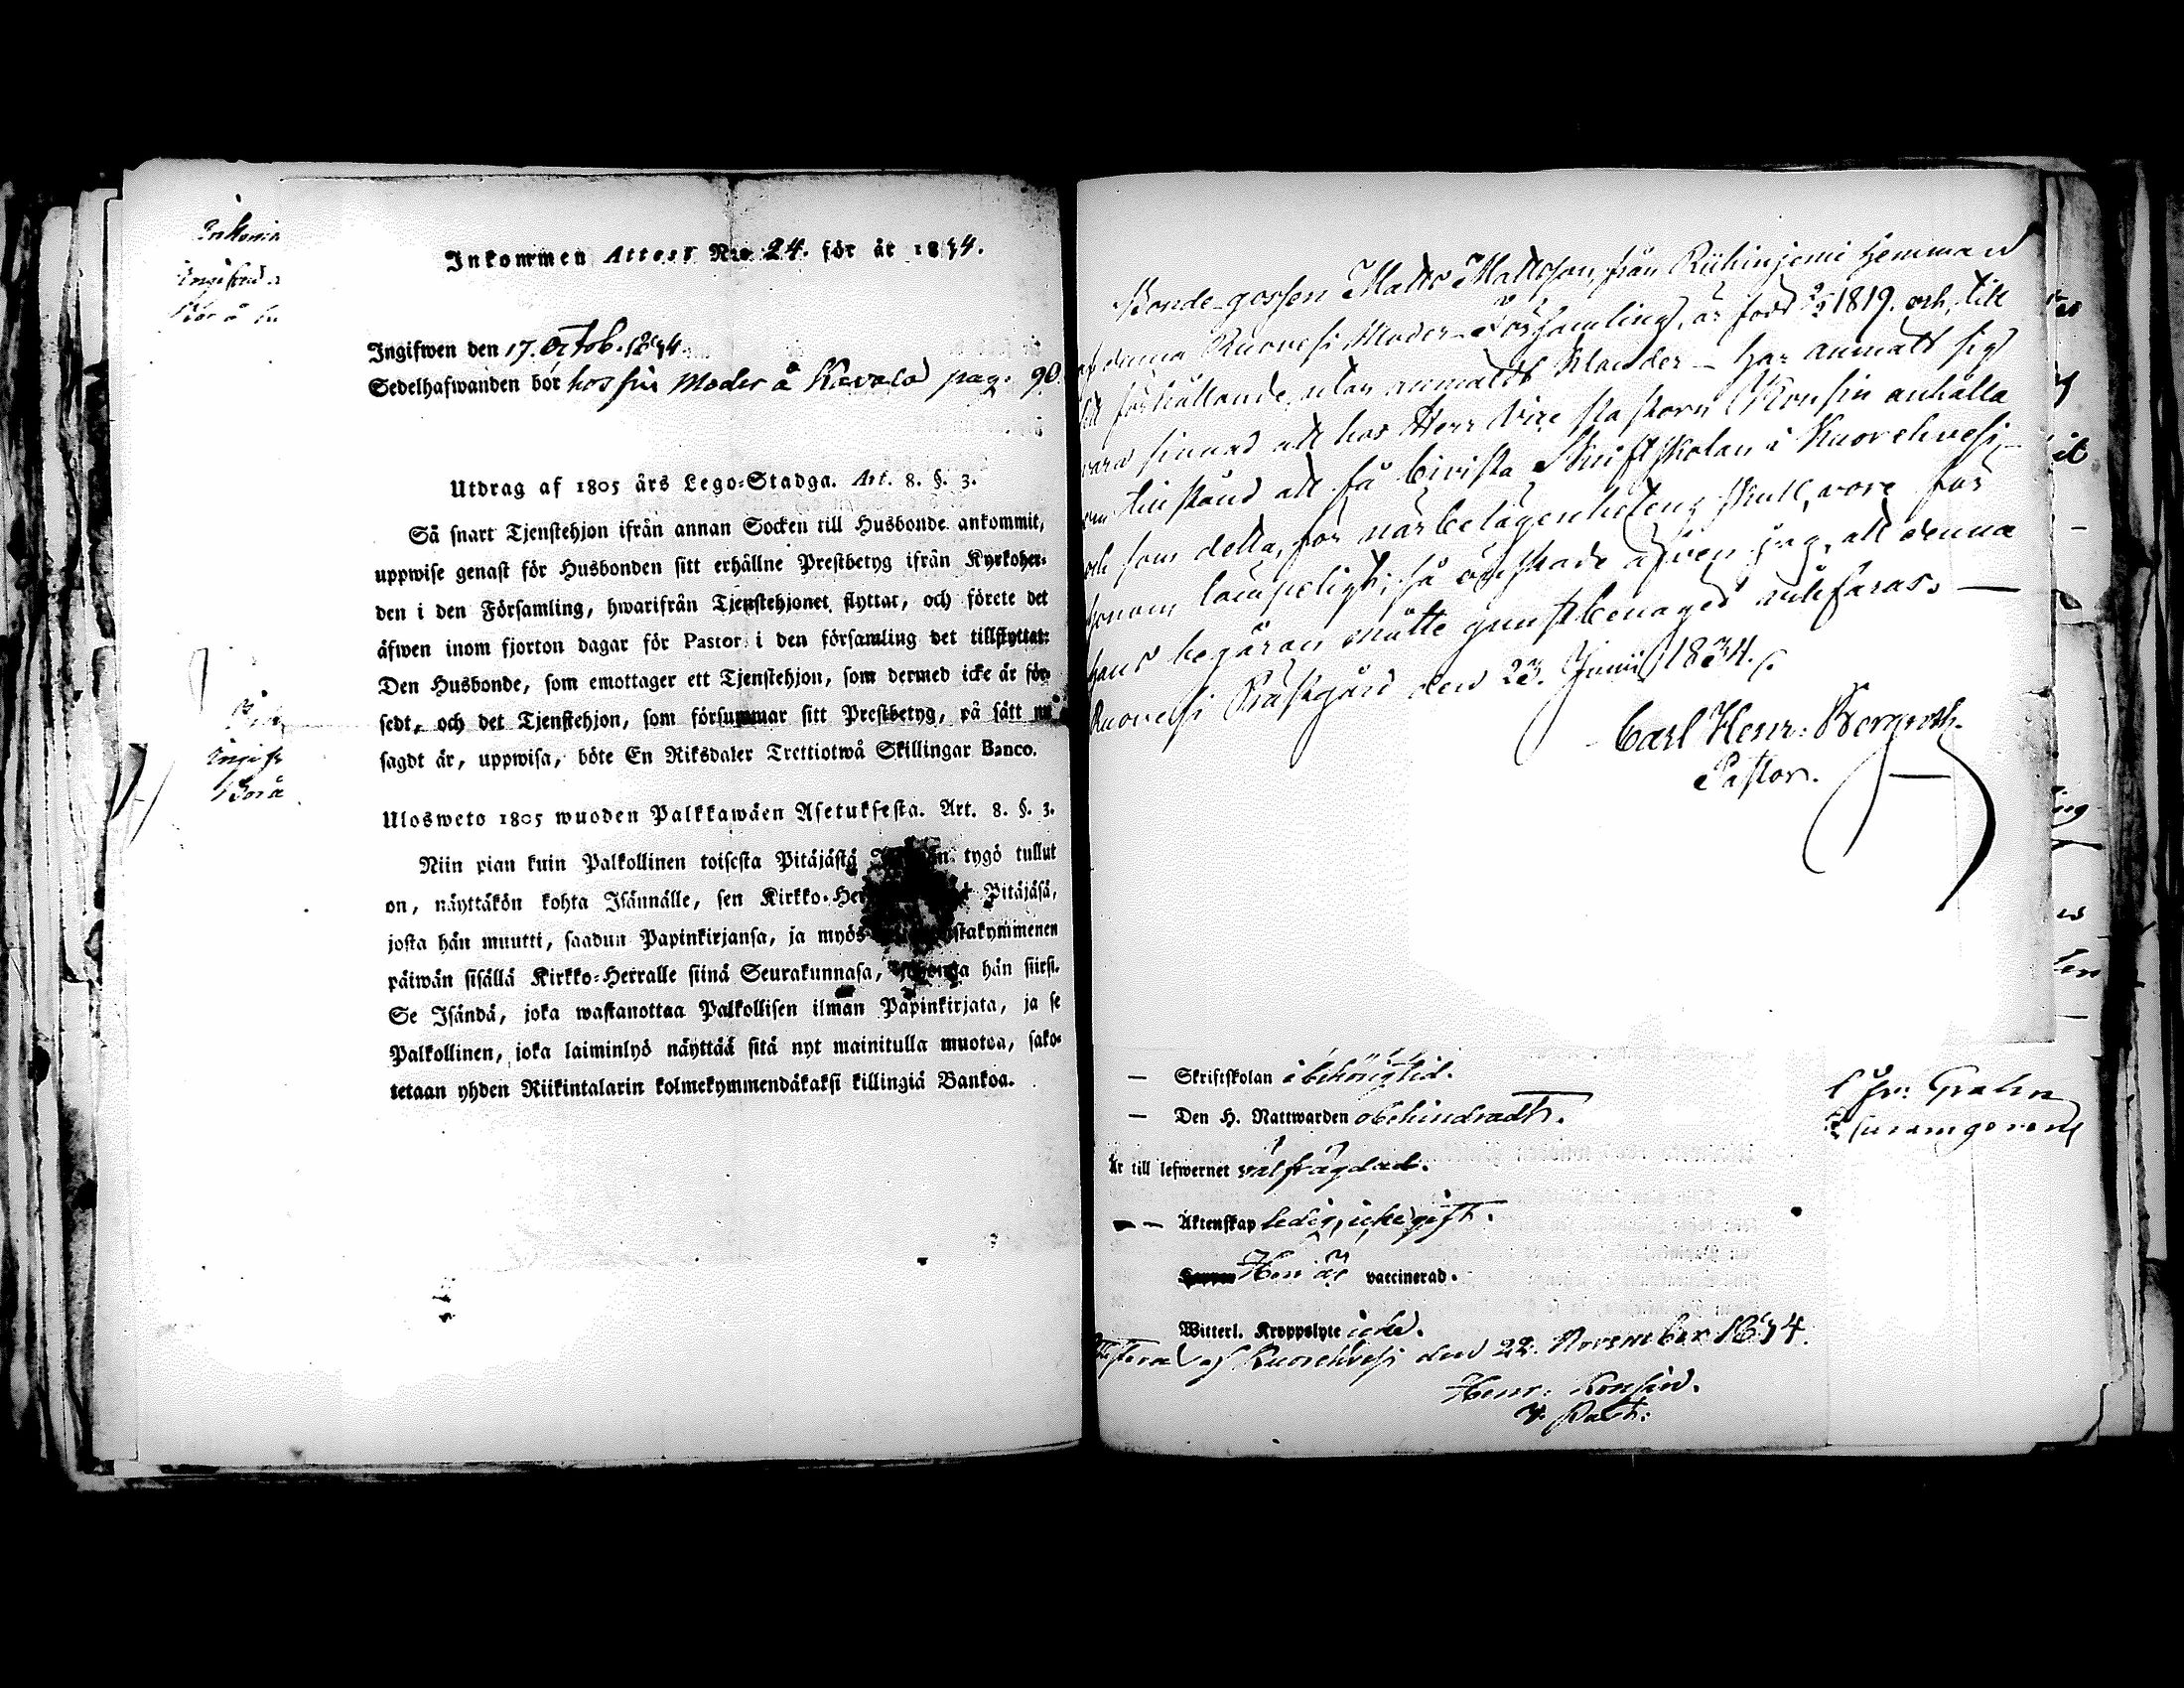 Inkommen Attest N:o 24. för år 1834.
Ingifwen den 17. Octob. 1834.
Sedelhafwanden bor hos sin Moder å Kavala pag. 90.
Utdrag af 1805 års Lego-Stadga. Art. 8. §. 3.
Så snart Tjenstehjon ifrån annan Socken till Husbonde ankommit,
uppwise genast för Husbonden sitt erhållne Prestbetyg ifrån Kyrkoher-
den i den Församling, hwarifrån Tjenstehjonet flyttat, och förete det
äfwen inom fjorton dagar för Pastor i den församling det tillflyttat:
Den Husbonde, som emottager ett Tjenstehjon, som dermed icke är för-
sedt, och det Tjenstehjon, som försummar sitt Prestbetyg, på sätt nu
sagdt är, uppwisa, böte En Riksdaler Trettiotwå Skillingar Banco.
Ulosweto 1805 wuoden Palkkawäen Asetuksesta. Art. 8. §. 3.
Niin pian kuin Palkollinen toisesta Pitäjästä tygö tullut
on, näyttäkön kohta Isännälle, sen Kirkko-Her Pitäjäsä,
josta hän muutti, saadun Papinkirjansa, ja myös stakymmenen
päiwän sisällä Kirkko-Herralle siinä Seurakunnasa, hän siirsi.
Se Isändä, joka wastanottaa Palkollisen ilman Papinkirjata, ja se
Palkollinen, joka laiminlyö näyttää sitä nyt mainitulla muotoa, sako-
tetaan yhden Riikintalarin kolmekymmendäkaksi killingiä Bankoa.
Ingifwed
Bor å
Bor å
Bonde-gossen Matts Mattsson, från Riihinjemi Hemman
af denna Ruovesi Moder-Församling, är född 1819. och, till
sitt förhållande, utan anmäldt klander - har anmält sig
vara sinnad att hos Herr Vice Pastorn Konsin anhålla
om tillstånd att få bivista Skriftskolan i Kuorehvesi,-
och som detta, för närbelägenhetens skull, vore för
honom lämpeligt; så önskade äfven jag, att denna
hans begäran måtte gunstbenäget villfaras. —
Ruovesi Prästgård den 23. Junii 1834.
Carl Henr: Bergroth.
Pastor.
— Skriftskolan i behörig tid.
— Den H. Nattwarden obehindradt.
Är till lefwernet välfrägdad.
— — Äktenskap ledig, icke gift.
Hon är vaccinerad.
Witterl. Kroppslyte icke.
Kuorehvesi den 22. November 1834.
Henr: Konsin.
V. Past:
Fr: Grahn